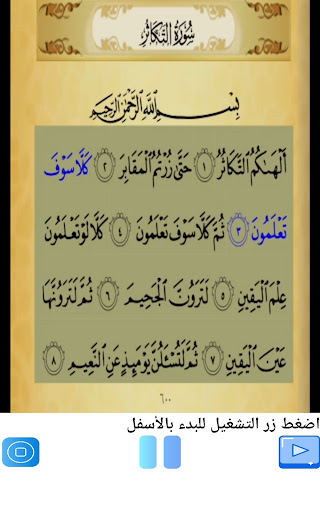 سُورَةُ التَّكَاثُرِ
بِسْمِ اللَّهِ الرَّحْمَٰنِ الرَّحِيمِ
أَلْهَىٰكُمُ التَّكَاثُرُ ١ حَتَّىٰ زُرْتُمُ الْمَقَابِرَ ٢ كَلَّا سَوْفَ
تَعْلَمُونَ ٣ ثُمَّ كَلَّا سَوْفَ تَعْلَمُونَ ٤ كَلَّا لَوْ تَعْلَمُونَ
عِلْمَ الْيَقِينِ ٥ لَتَرَوُنَّ الْجَحِيمَ ٦ ثُمَّ لَتَرَوُنَّهَا
عَيْنَ الْيَقِينِ ٧ ثُمَّ لَتُسْـَٔلُنَّ يَوْمَئِذٍ عَنِ النَّعِيمِ ٨
٦٠٠
اضغط زر التشغيل للبدء بالأسفل